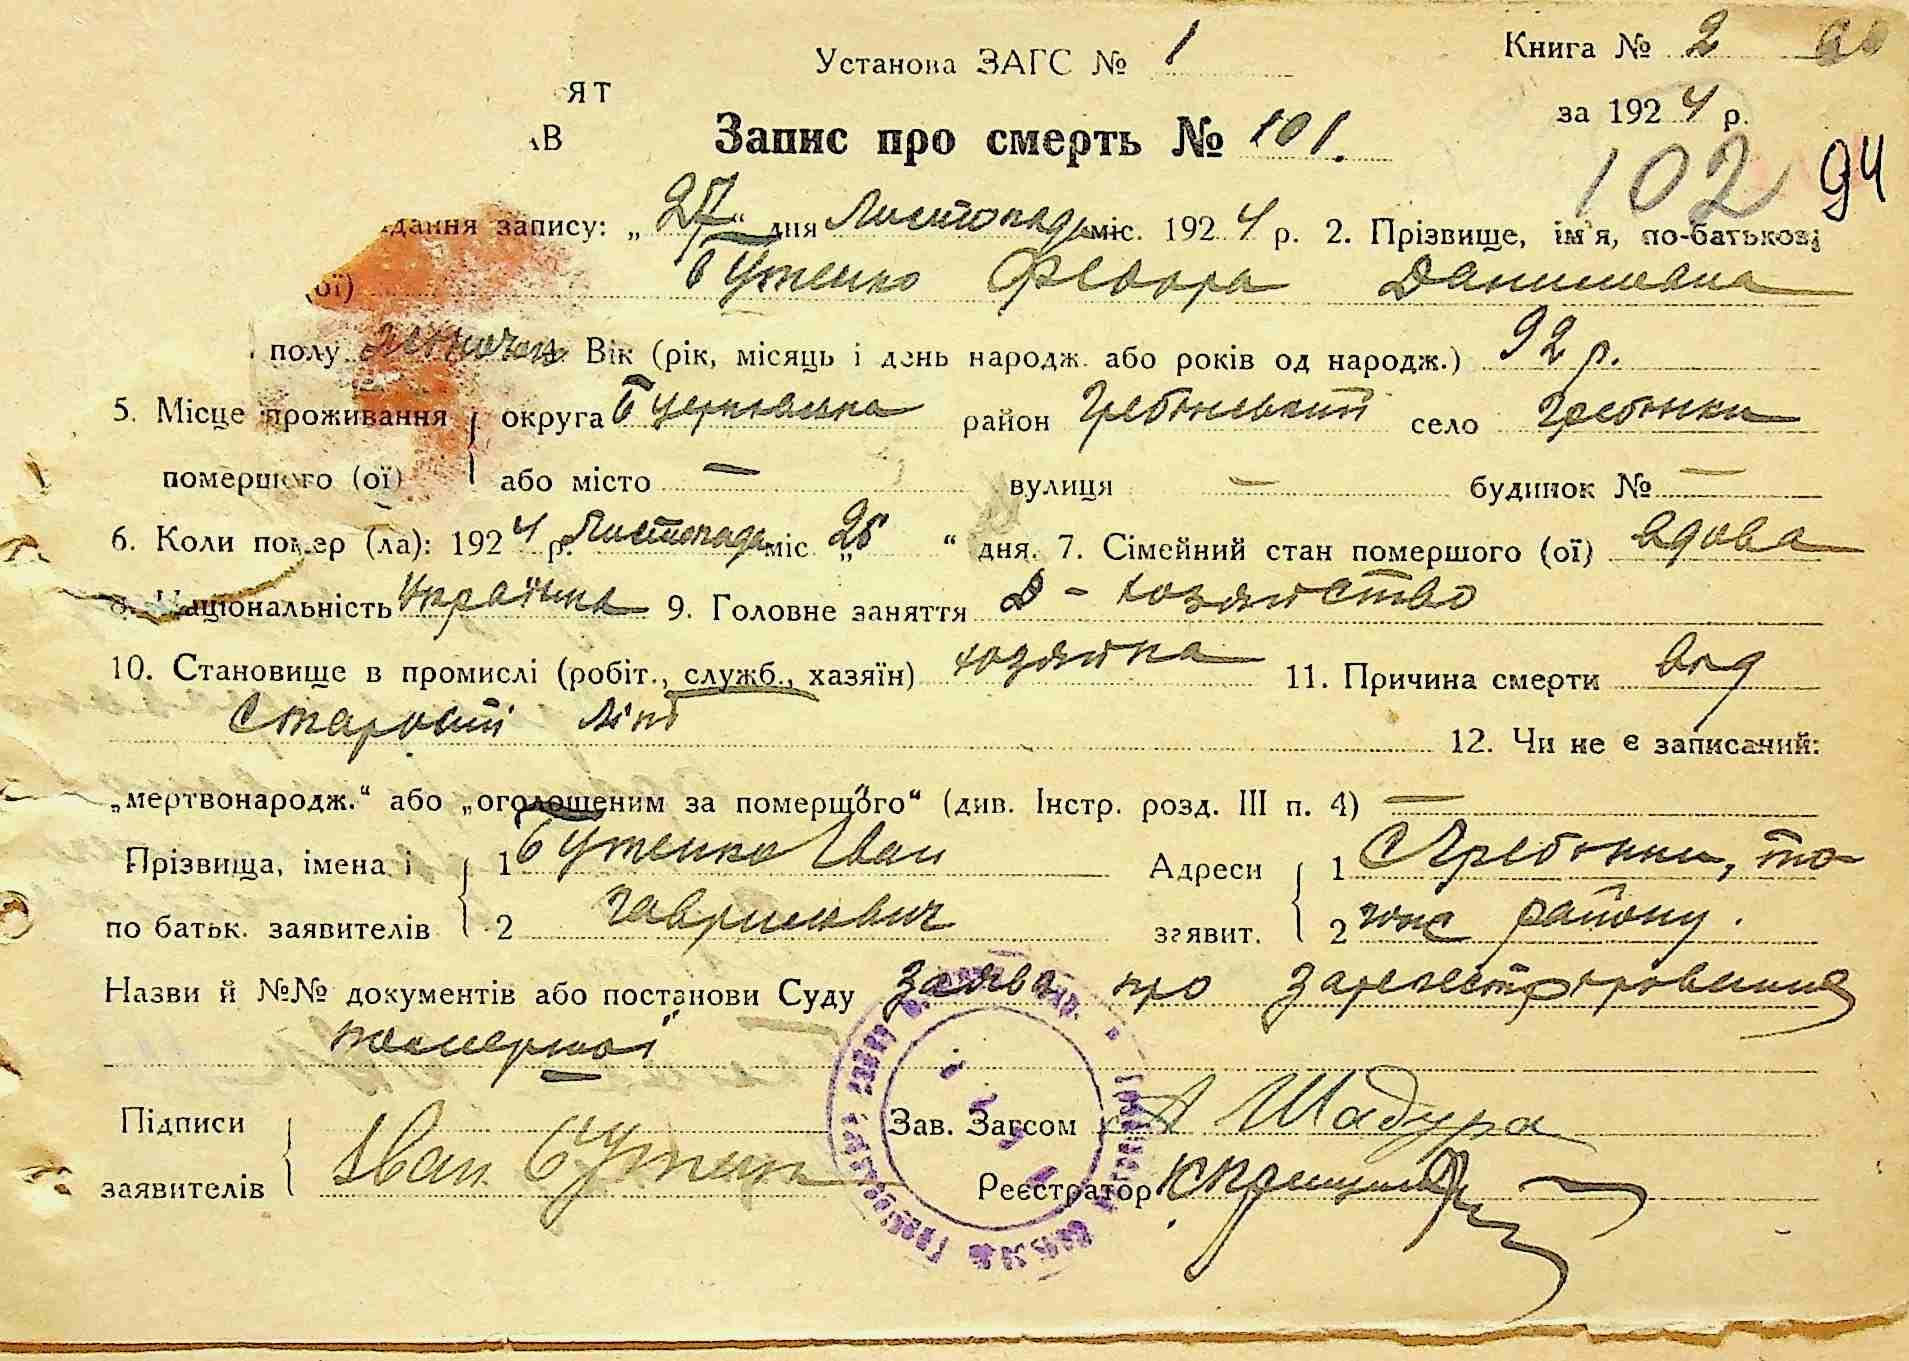 Установа ЗАГС № 1
Книга № 2
ЯТ
за 1924 р.
АВ
Запис про смерть № 101.
102 94
дання запису: „27“ дня Листопада міс. 1924 р. 2. Прізвище, ім'я, по-батькові
(ої) Бутенко Федора Данилівна
полу жіночої Вік (рік, місяць і день народж. або років од народж.) 92 р.
5. Місце проживання округа Б Церківська район Гребінський село Гребінки
помершого (ої) або місто — вулиця — будинок № —
6. Коли помер (ла): 1924 р. Листопада міс „26“ дня. 7. Сімейний стан помершого (ої) вдова
8. Національність Українка 9. Головне заняття Д-хозяйство
10. Становище в промислі (робіт., служб., хазяїн) хозяйка 11. Причина смерти від
старости літ 12. Чи не є записаний:
„мертвонародж.“ або „оголошеним за помершого“ (див. Інстр. розд. III п. 4) —
Прізвища, імена і 1 Бутенко Іван Адреси 1 С Гребінки, то-
по батьк. заявителів 2 Гаврилович заявит. 2 гож району.
Назви й №№ документів або постанови Суду Заява про зареєстрірованння
помершої
Підписи Зав. Загсом А Шадура
заявителів Іван Бутенк Реєстратор